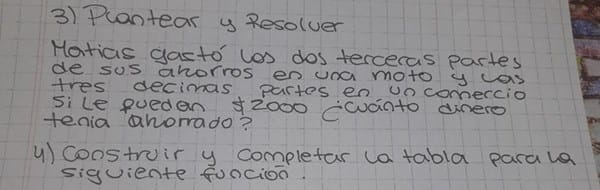 3) Plantear y Resolver
Matias gastó los dos terceras partes
de sus ahorros en una moto y las
tres decimas partes en un comercio
si le quedan $2000 ¿cuánto dinero
tenia ahorrado?
4) Construir y completar la tabla para la
siguiente función.